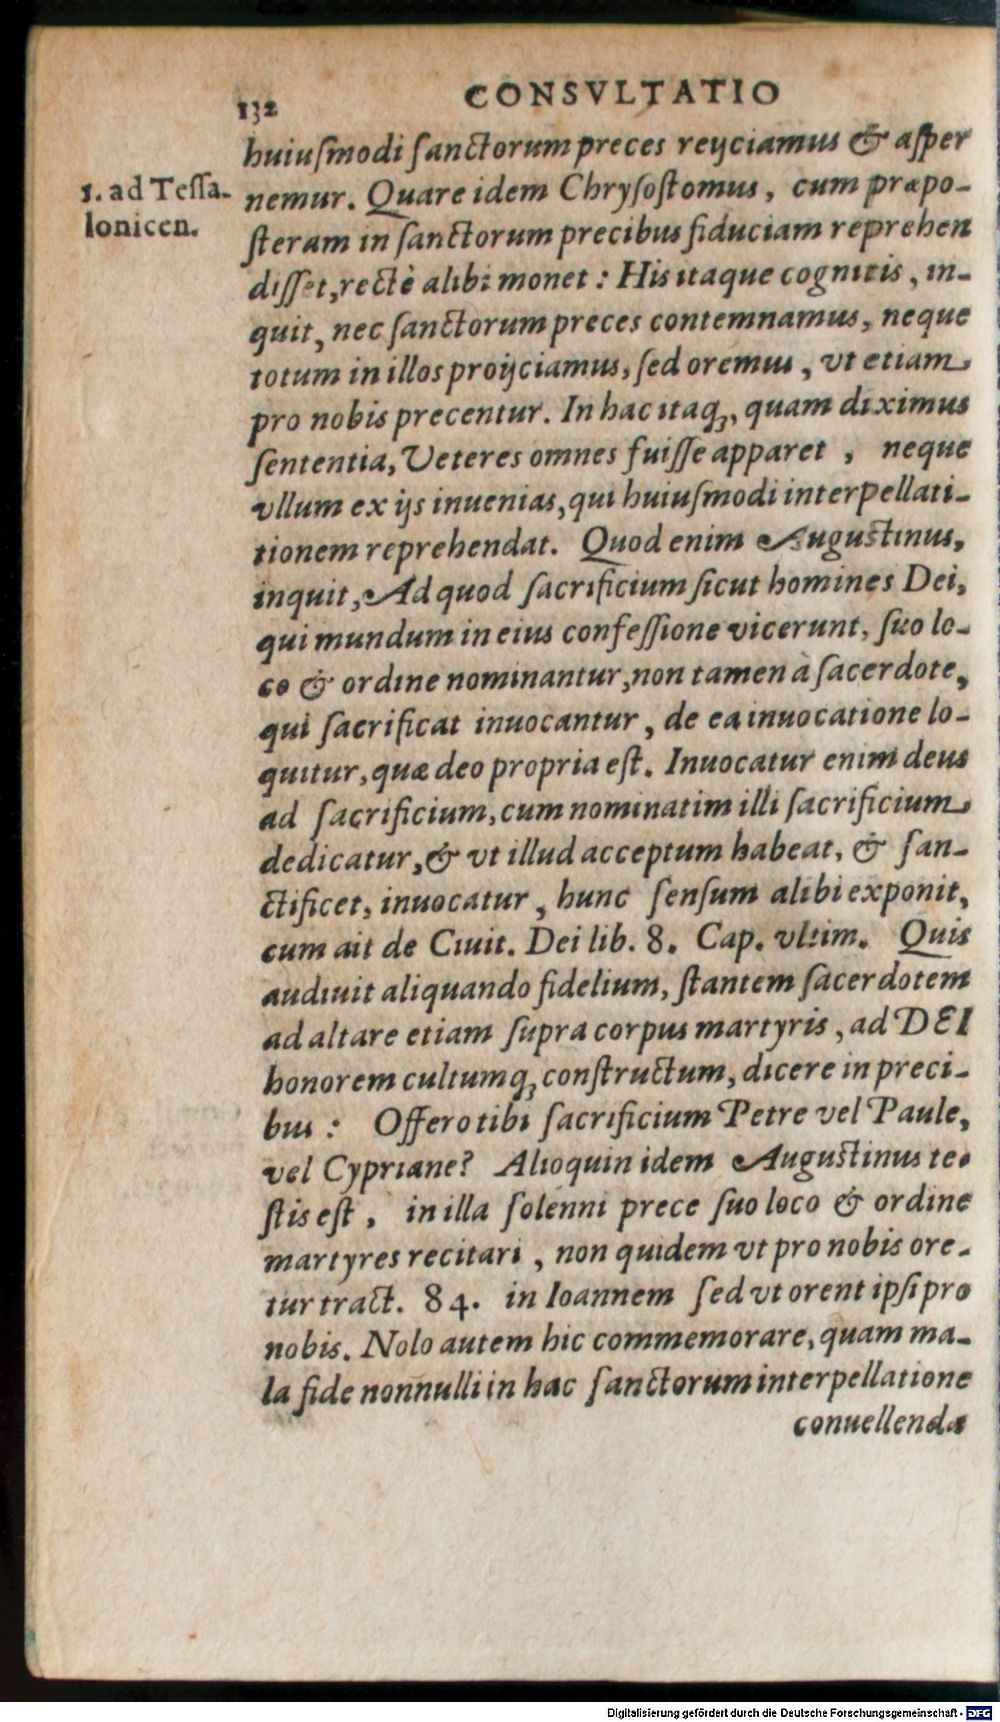 132 CONSVLTATIO
huiuſmodi ſanctorum preces reijciamus & aſper
1. ad Teſſa-
lonicen.
nemur. Quare idem Chryſoſtomus, cum præpo-
ſteram in ſanctorum precibus fiduciam reprehen
diſſet, rectè alibi monet: His itaque cognitis, in-
quit, nec ſanctorum preces contemnamus, neque
totum in illos proijciamus, ſed oremus, vt etiam
pro nobis precentur. In hac itaq;, quam diximus
ſententia, Veteres omnes fuiſſe apparet, neque
vllum ex ijs inuenias, qui huiuſmodi interpellati-
tionem reprehendat. Quod enim Auguſtinus,
inquit, Ad quod ſacrificium ſicut homines Dei,
qui mundum in eius confeſſione vicerunt, ſuo lo-
co & ordine nominantur, non tamen à ſacerdote,
qui ſacrificat inuocantur, de ea inuocatione lo-
quitur, quæ deo propria eſt. Inuocatur enim deus
ad ſacrificium, cum nominatim illi ſacrificium
dedicatur, & vt illud acceptum habeat, & ſan-
ctificet, inuocatur, hunc ſenſum alibi exponit,
cum ait de Ciuit. Dei lib. 8. Cap. vltim. Quis
audiuit aliquando fidelium, ſtantem ſacerdotem
ad altare etiam ſupra corpus martyris, ad DEI
honorem cultumq; conſtructum, dicere in preci-
bus: Offero tibi ſacrificium Petre vel Paule,
vel Cypriane? Alioquin idem Auguſtinus te-
ſtis eſt, in illa ſolenni prece ſuo loco & ordine
martyres recitari, non quidem vt pro nobis ore-
tur tract. 84. in Ioannem ſed vt orent ipſi pro
nobis. Nolo autem hic commemorare, quam ma-
la fide nonnulli in hac ſanctorum interpellatione
conuellenda
Digitalisierung gefördert durch die Deutsche Forschungsgemeinschaft - DFG